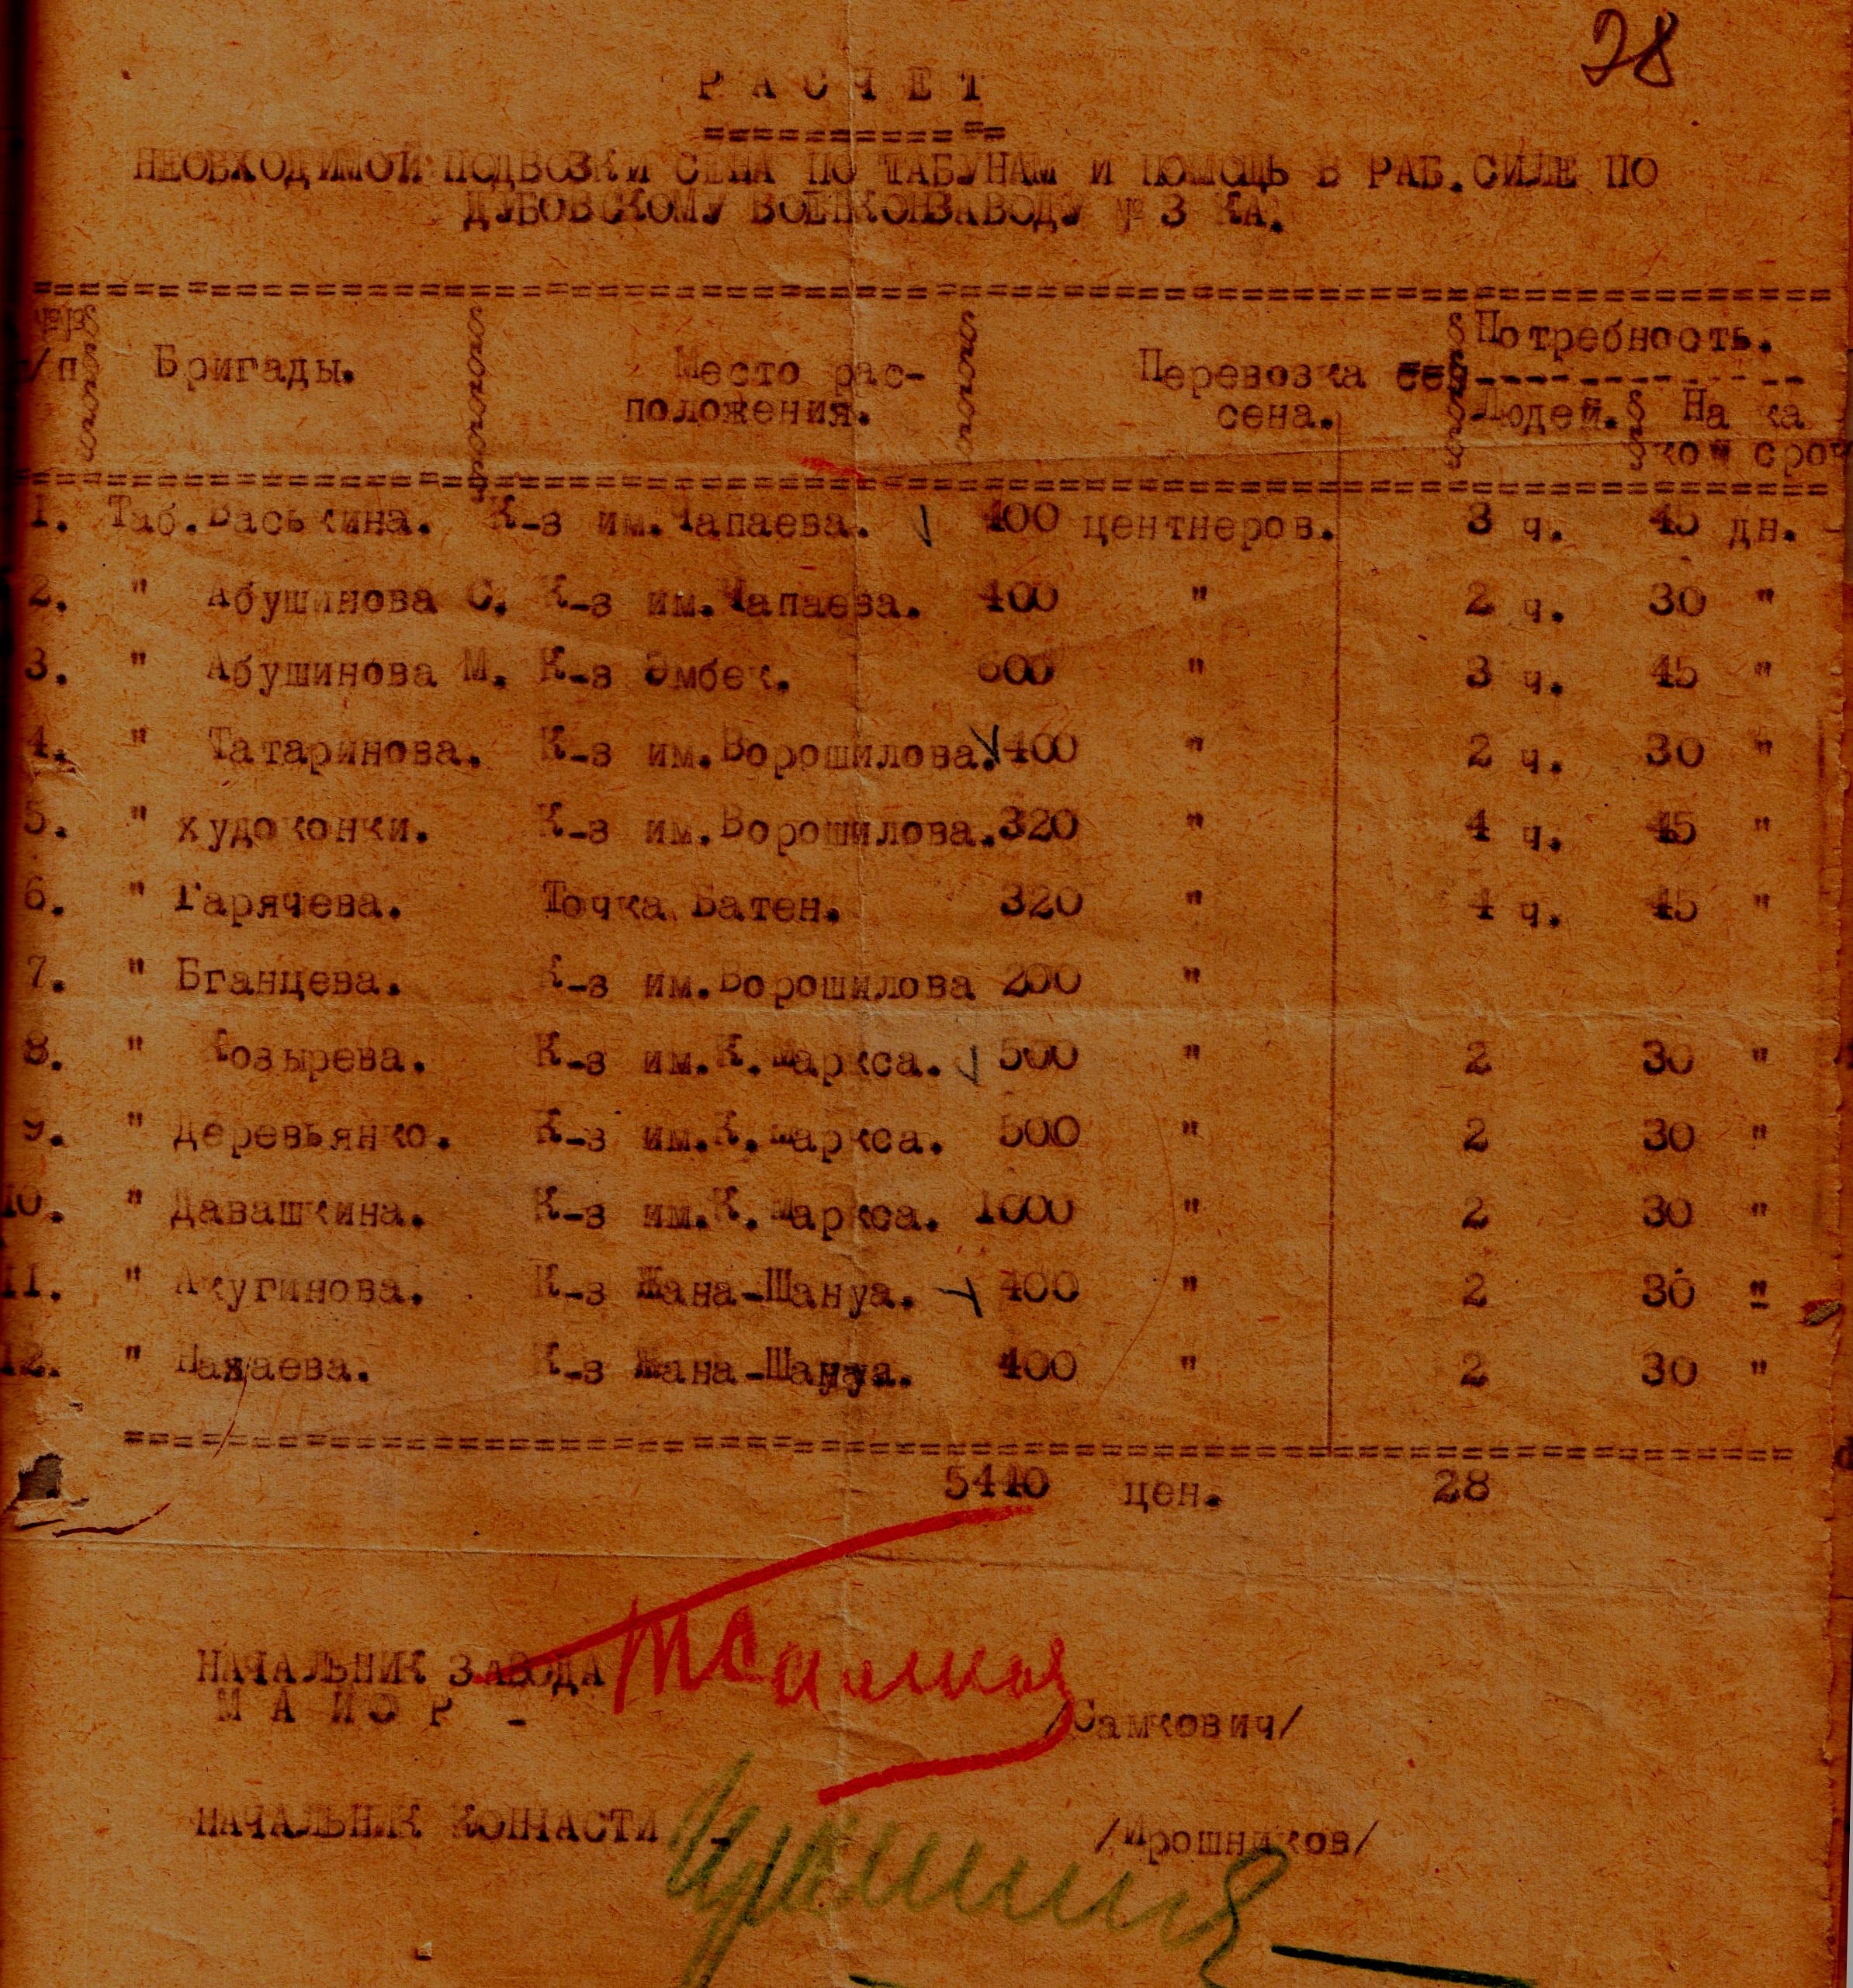 28
Р А С Ч Е Т
============
НЕОБХОДИМОЙ ПОДВОЗКИ СЕНА ПО ТАБУНАМ И ПОМОЩЬ В РАБ.СИЛЕ ПО
ДУБОВСКОМУ ВОЕНКОНЗАВОДУ № 3 КА.
№№ § Бригады. § Место рас- § Перевозка сен § Потребность.
/п положения. сена. § Людей. § На ка
§ § ком сроч
1. Таб.Васькина. К-з им.Чапаева. 400 центнеров. 3 ч. 45 дн.
2. " Абушинова С. К-з им.Чапаева. 400 " 2 ч. 30 "
3. " Абушинова М. К-з Эмбек. 600 " 3 ч. 45 "
4. " Татаринова. К-з им.Ворошилова. 400 " 2 ч. 30 "
5. " худоконки. К-з им.Ворошилова. 320 " 4 ч. 45 "
6. " Гарячева. Точка Батен. 320 " 4 ч. 45 "
7. " Бганцева. К-з им.Ворошилова 200 "
8. " Козырева. К-з им.К.Маркса. 500 " 2 30 "
9. " Деревьянко. К-з им.К.Маркса. 500 " 2 30 "
10. " Давашкина. К-з им.К.Маркса. 1000 " 2 30 "
11. " Акугинова. К-з Жана-Шануа. 400 " 2 30 "
12. " К-з Жана-Шануа. 400 " 2 30 "
5440 цен. 28
НАЧАЛЬНИК ЗАВОДА
М А Й О Р - /Самкович/
НАЧАЛЬНИК КОНЧАСТИ - /Ирошников/